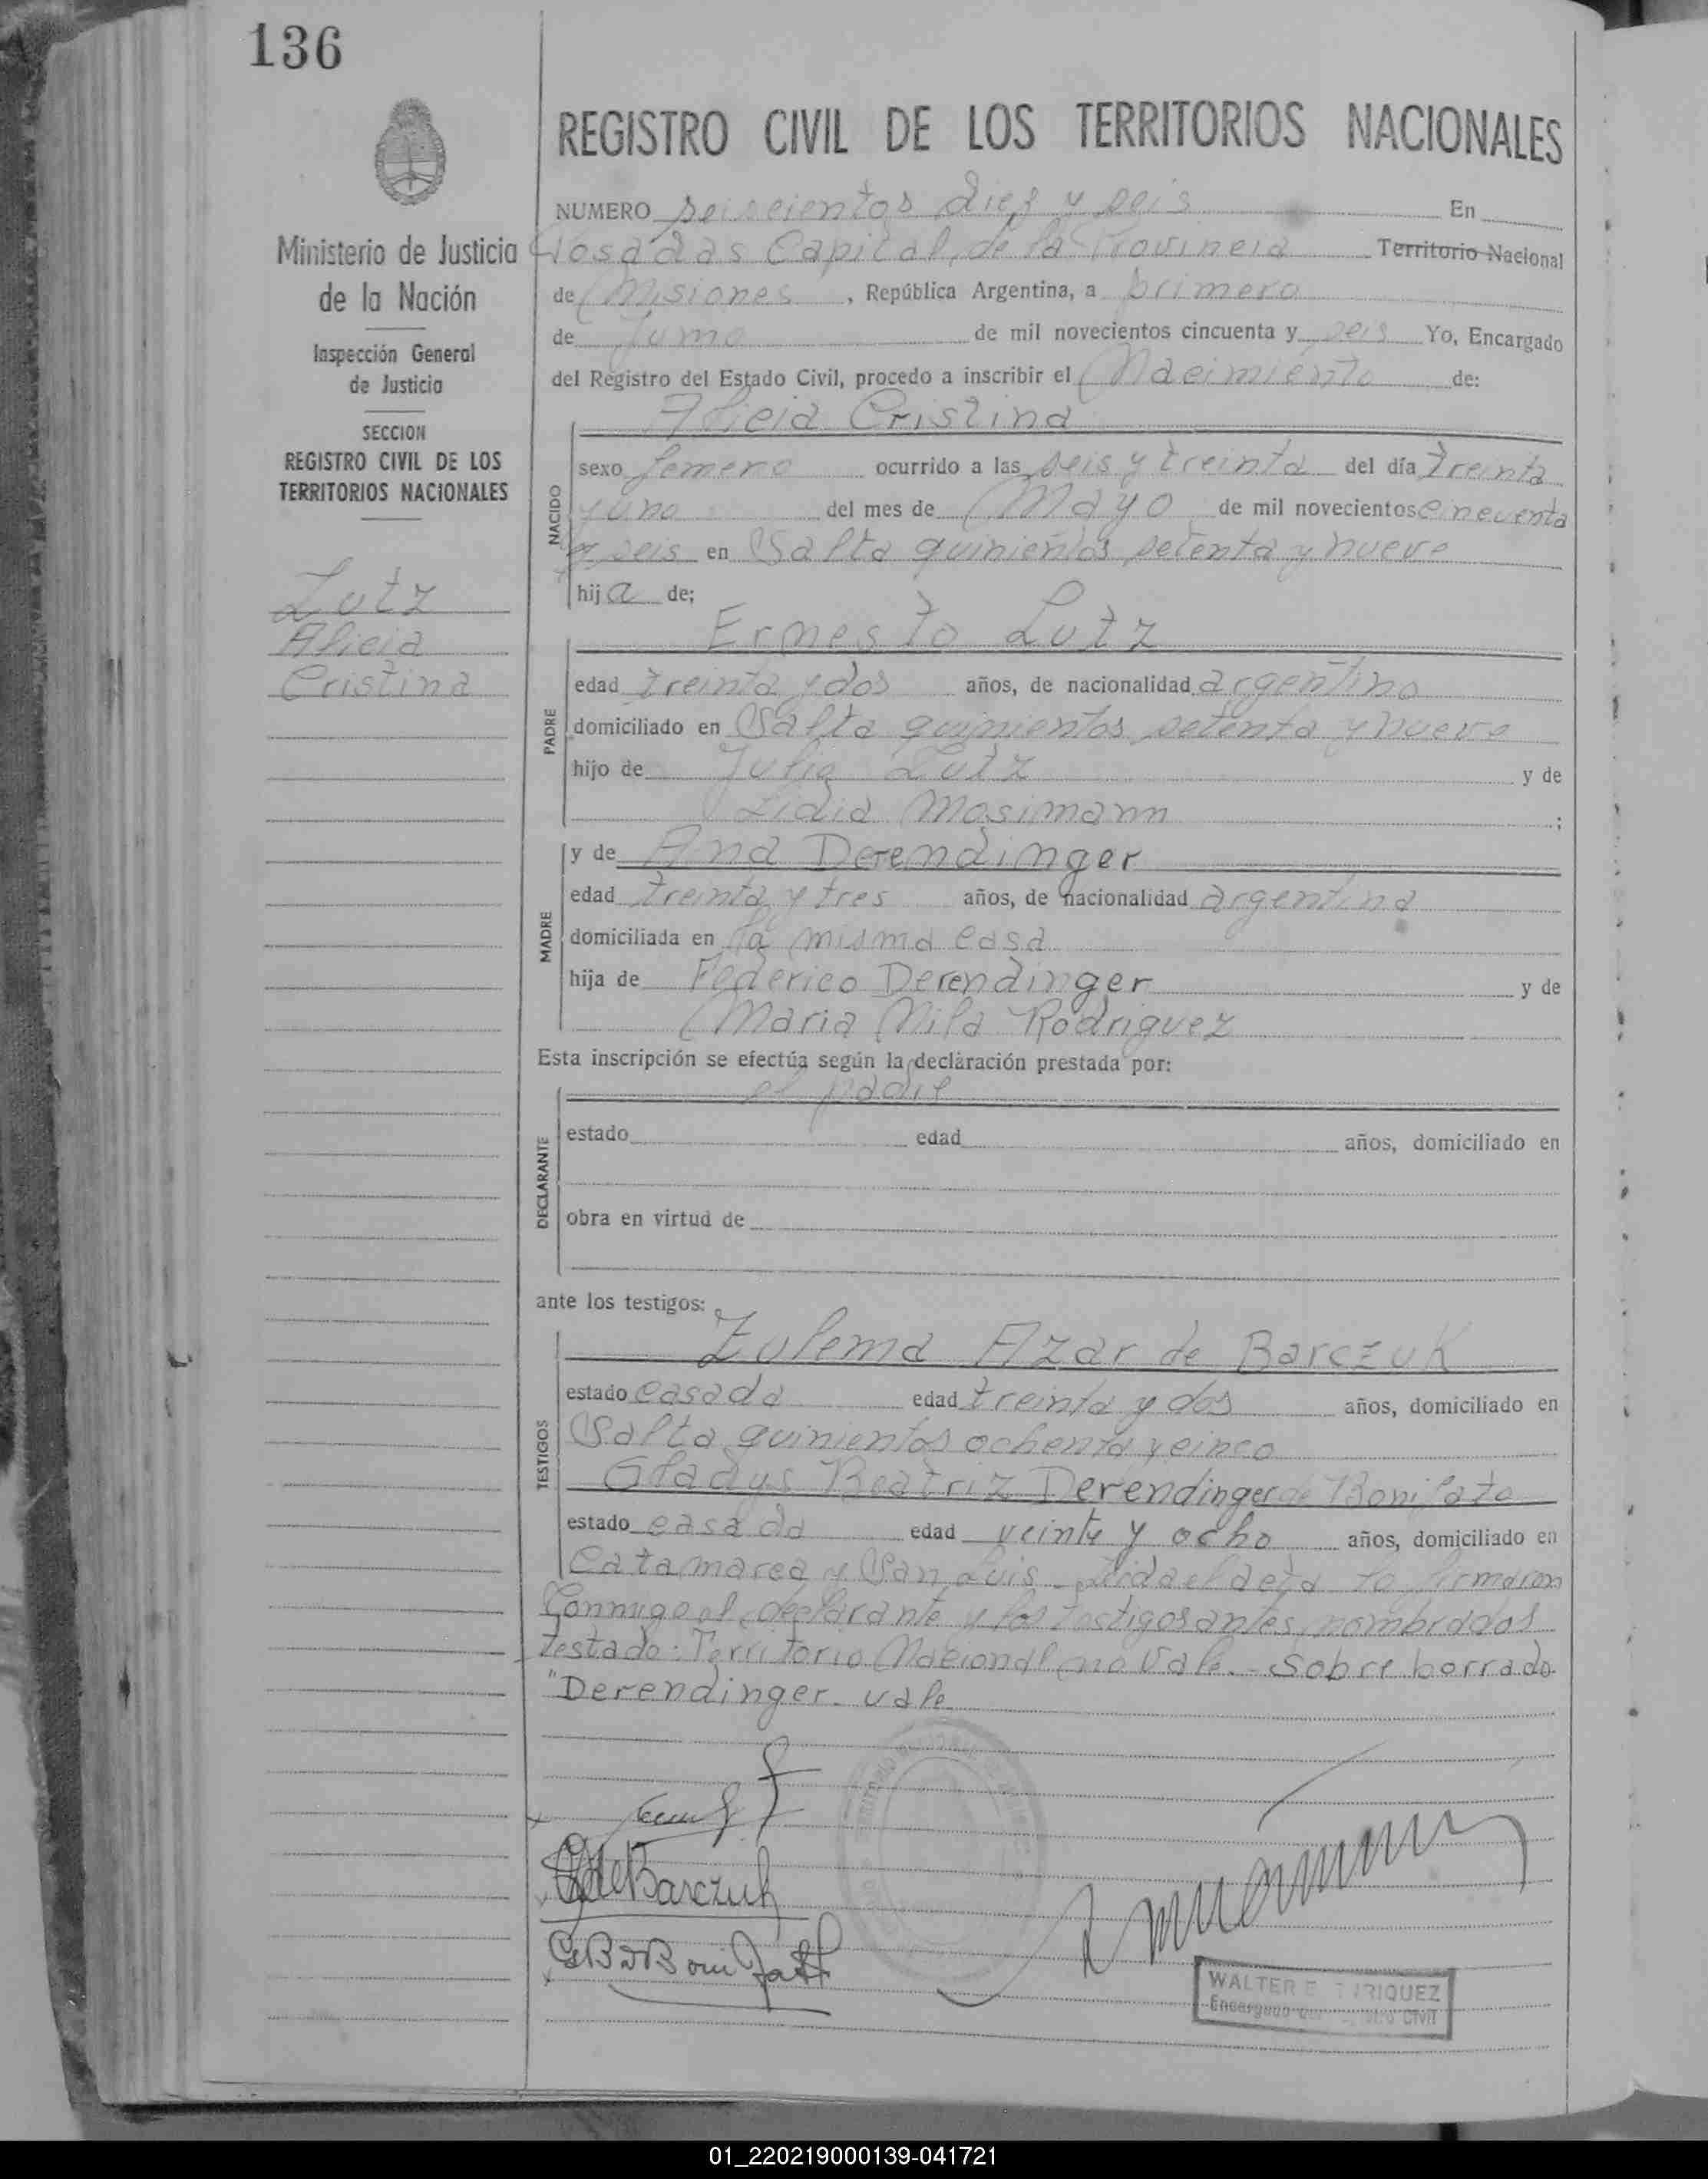 136
REGISTRO CIVIL DE LOS TERRITORIOS NACIONALES
Ministerio de Justicia
de la Nación
Inspección General
de Justicia
SECCION
REGISTRO CIVIL DE LOS
TERRITORIOS NACIONALES
Lutz
Alicia
Cristina
NUMERO seiscientos diez y seis En
Posadas Capital de la Provincia Territorio Nacional
de Misiones, República Argentina, a primero
de Junio de mil novecientos cincuenta y seis Yo, Encargado
del Registro del Estado Civil, procedo a inscribir el Nacimiento de:
NACIDO
Alicia Cristina
sexo femeno ocurrido a las seis y treinta del día treinta
y uno del mes de Mayo de mil novecientos cincuenta
y seis en Salta quinientos setenta y nueve
hija de;
PADRE
Ernesto Lutz
edad treinta y dos años, de nacionalidad argentino
domiciliado en Salta quinientos setenta y nueve
hijo de Julio Lutz y de
Lidia Mosimann ;
MADRE
y de Ana Derendinger
edad treinta y tres años, de nacionalidad argentina
domiciliada en la misma casa
hija de Federico Derendinger y de
Maria Mila Rodriguez
Esta inscripción se efectúa según la declaración prestada por:
DECLARANTE
el padre
estado edad años, domiciliado en
obra en virtud de
ante los testigos:
TESTIGOS
Zulema Azar de Barczuk
estado casada edad treinta y dos años, domiciliado en
Salta quinientos ochenta y cinco
Gladys Beatriz Derendinger de Bonifato
estado casada edad veinte y ocho años, domiciliado en
Catamarca y San Luis - Leida el acta la firmaron
Conmigo el declarante y los testigos antes nombrados
testado: Territorio Nacional no vale. - Sobre borrado
"Derendinger. vale
de Barczuk
WALTER E. ENRIQUEZ
Encargado del Civil
01_220219000139-041721